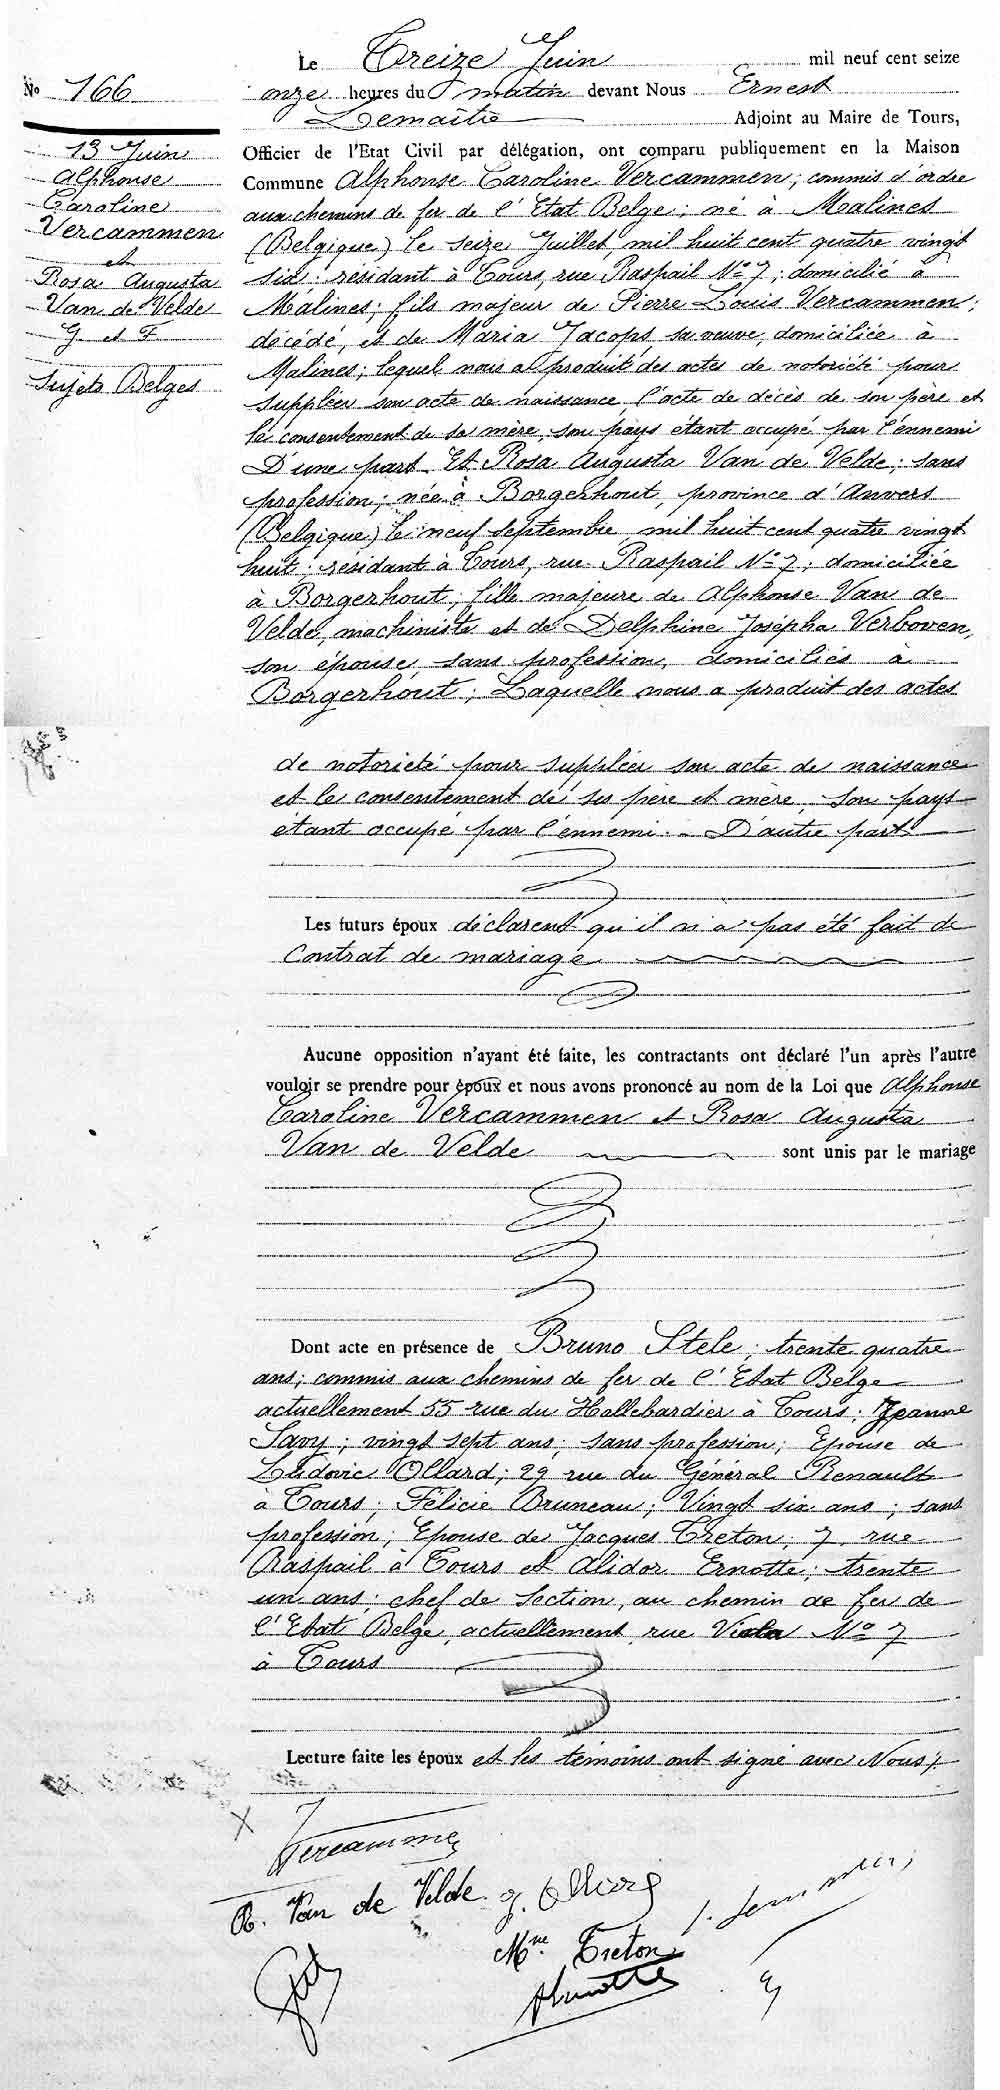 Le Treize Juin mil neuf cent seize
No 166
onze heures du matin devant Nous Ernest
Lemaître Adjoint au Maire de Tours,
13 Juin
Alphonse
Caroline
Vercammen
et
Rosa Augusta
Van de Velde
G et F
Sujets Belges
Officier de l'Etat Civil par délégation, ont comparu publiquement en la Maison
Commune Alphonse Caroline Vercammen; commis d'ordre
aux chemins de fer de l'Etat Belge; né à Malines
(Belgique) le seize Juillet, mil huit cent quatre vingt
six; résidant à Tours, rue Raspail No 7; domicilié à
Malines; fils majeur de Pierre Louis Vercammen;
décédé, et de Maria Jacops sa veuve, domiciliée à
Malines; lequel nous a produit des actes de notoriété pour
suppléer son acte de naissance, l'acte de décès de son père et
le consentement de sa mère, son pays étant occupé par l'ennemi
D'une part. Et Rosa Augusta Van de Velde; sans
profession; née à Borgerhout, province d'Anvers
(Belgique) le neuf septembre, mil huit cent quatre vingt
huit; résidant à Tours, rue Raspail No 7; domiciliée
à Borgerhout; fille majeure de Alphonse Van de
Velde, machiniste et de Delphine Josépha Verboven,
son épouse, sans profession, domiciliés à
Borgerhout; Laquelle nous a produit des actes
de notoriété pour suppléer son acte de naissance
et le consentement de ses père et mère, son pays
étant occupé par l'ennemi. D'autre part
Les futurs époux déclarent qu'il n'a pas été fait de
contrat de mariage
Aucune opposition n'ayant été faite, les contractants ont déclaré l'un après l'autre
vouloir se prendre pour époux et nous avons prononcé au nom de la Loi que Alphonse
Caroline Vercammen et Rosa Augusta
Van de Velde sont unis par le mariage
Dont acte en présence de Bruno Stele; trente quatre
ans; commis aux chemins de fer de l'Etat Belge
actuellement 55 rue du Hallebardier à Tours; Jeanne
Savy; vingt sept ans; sans profession; Epouse de
Ludovic Ollard; 29 rue du Général Renault
à Tours; Félicie Bruneau; Vingt six ans; sans
profession; Epouse de Jacques Treton; 7, rue
Raspail à Tours et Alidor Ernotte; trente
un ans; chef de section, au chemin de fer de
l'Etat Belge, actuellement, rue Viala No 7
à Tours
Lecture faite les époux et les témoins ont signé avec Nous
Vercammen
R. Van de Velde J. Ollard
Mme Treton
AErnotte